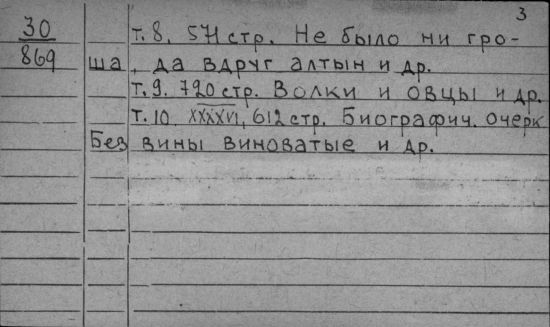 3
30
869
т. 8. 571 стр. Не было ни гро-
ша, да вдруг алтын и др.
т. 9. 720 стр. Волки и овцы и др.
т. 10. XXXXVI, 612 стр. Биографич. очерк
Без вины виноватые и др.